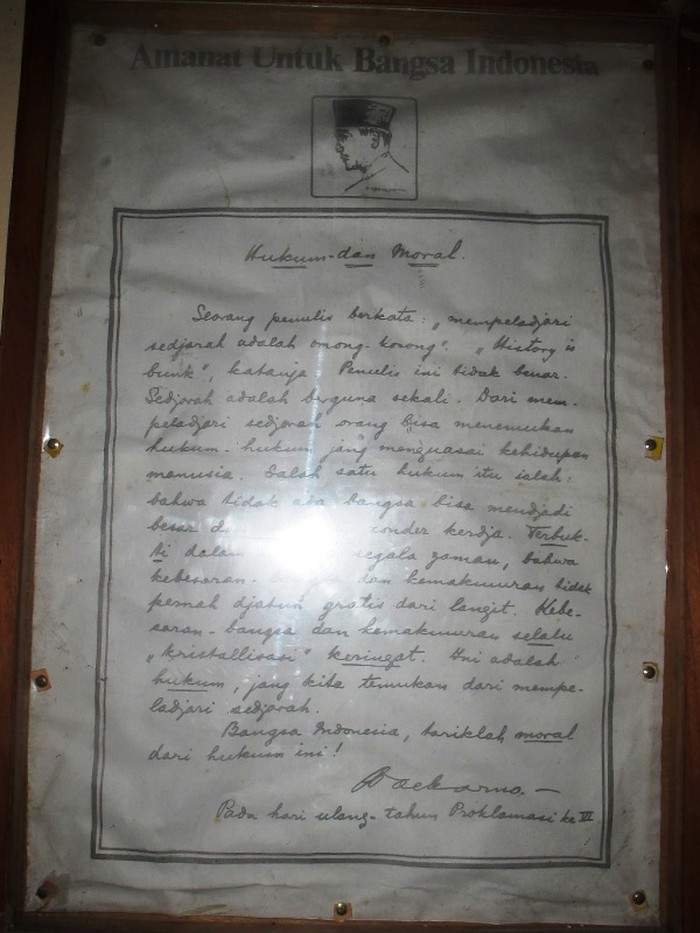 Amanat Untuk Bangsa Indonesia
Hukum-dan Moral.
Seorang penulis berkata: „mempeladjari
sedjarah adalah omong-kosong". „History is
bunk", katanja. Penulis ini tidak benar.
Sedjarah adalah berguna sekali. Dari mem-
peladjari sedjarah orang bisa menemukan
hukum-hukum jang menguasai kehidupan
manusia. Salah satu hukum itu ialah:
bahwa tidak ada bangsa bisa mendjadi
besar zonder kerdja. Terbuk-
ti dalam segala zaman, bahwa
kebesaran- dan kemakmuran tidak
pernah djatuh gratis dari langit. Kebe-
saran-bangsa dan kemakmuran selalu
„kristallisasi" keringat. Ini adalah
hukum, jang kita temukan dari mempe-
ladjari sedjarah.
Bangsa Indonesia, tariklah moral
dari hukum ini!
Soekarno.-
Pada hari ulang-tahun Proklamasi ke VI.